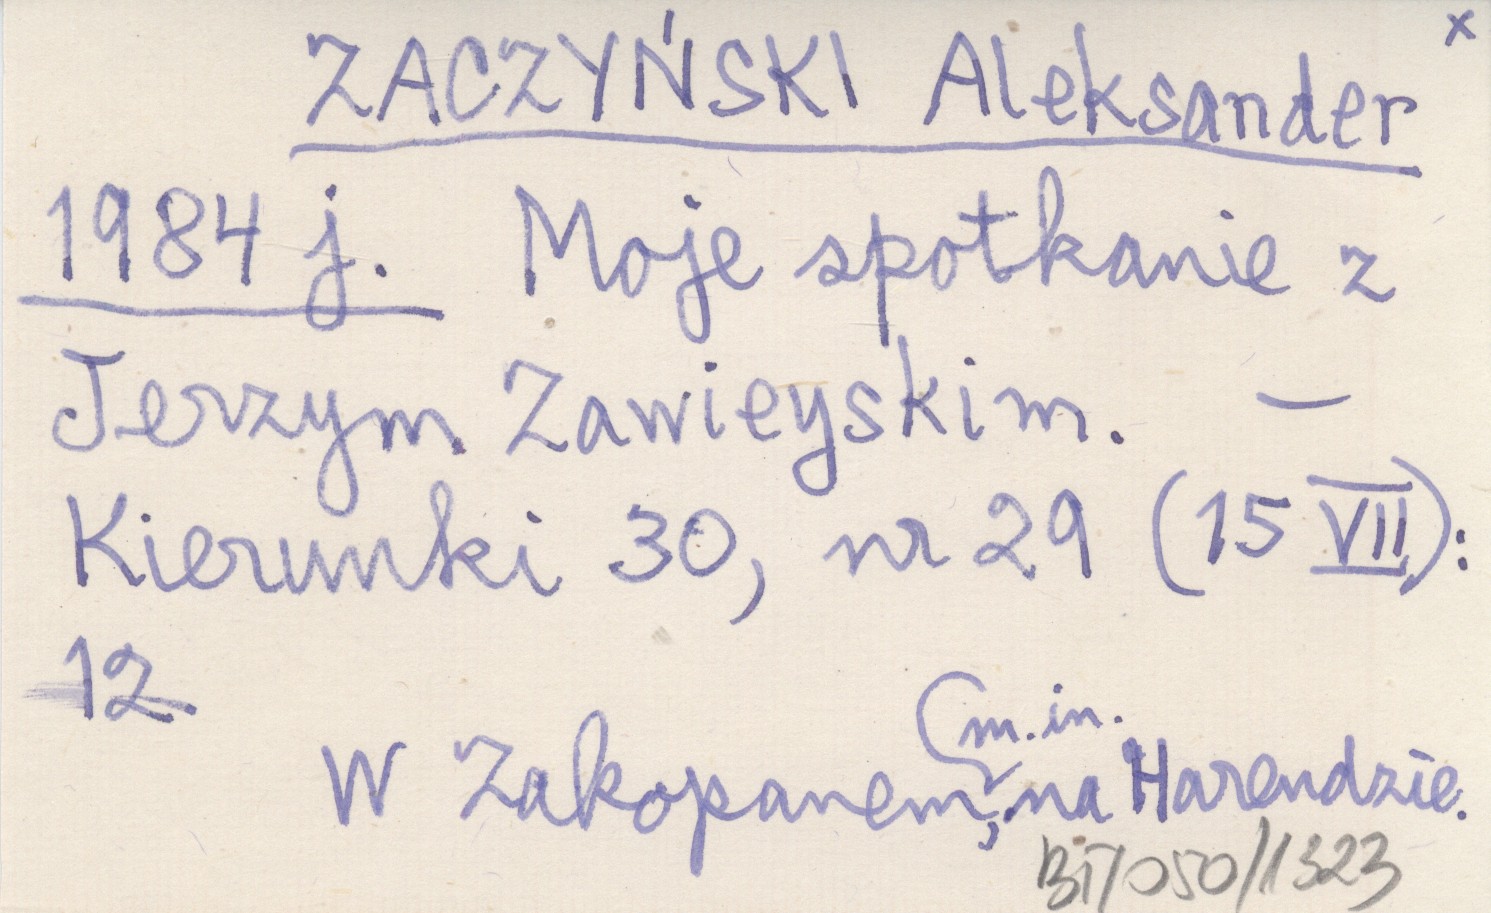 x
ZACZYŃSKI Aleksander
1984 j. Moje spotkanie z
Jerzym Zawieyskim. —
Kierunki 30, nr 29 (15 VII):
12.
W Zakopanem, m.in. na Harendzie.
BT/050/1323